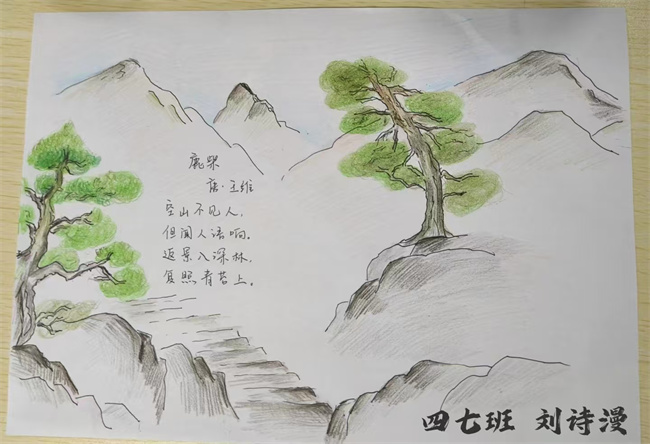 鹿柴
唐·王维
空山不见人,
但闻人语响。
返景入深林,
复照青苔上。
四七班 刘诗漫